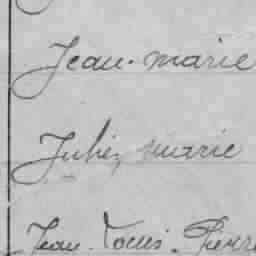 Jean-marie
Julien marie
Jean Louis Pierre